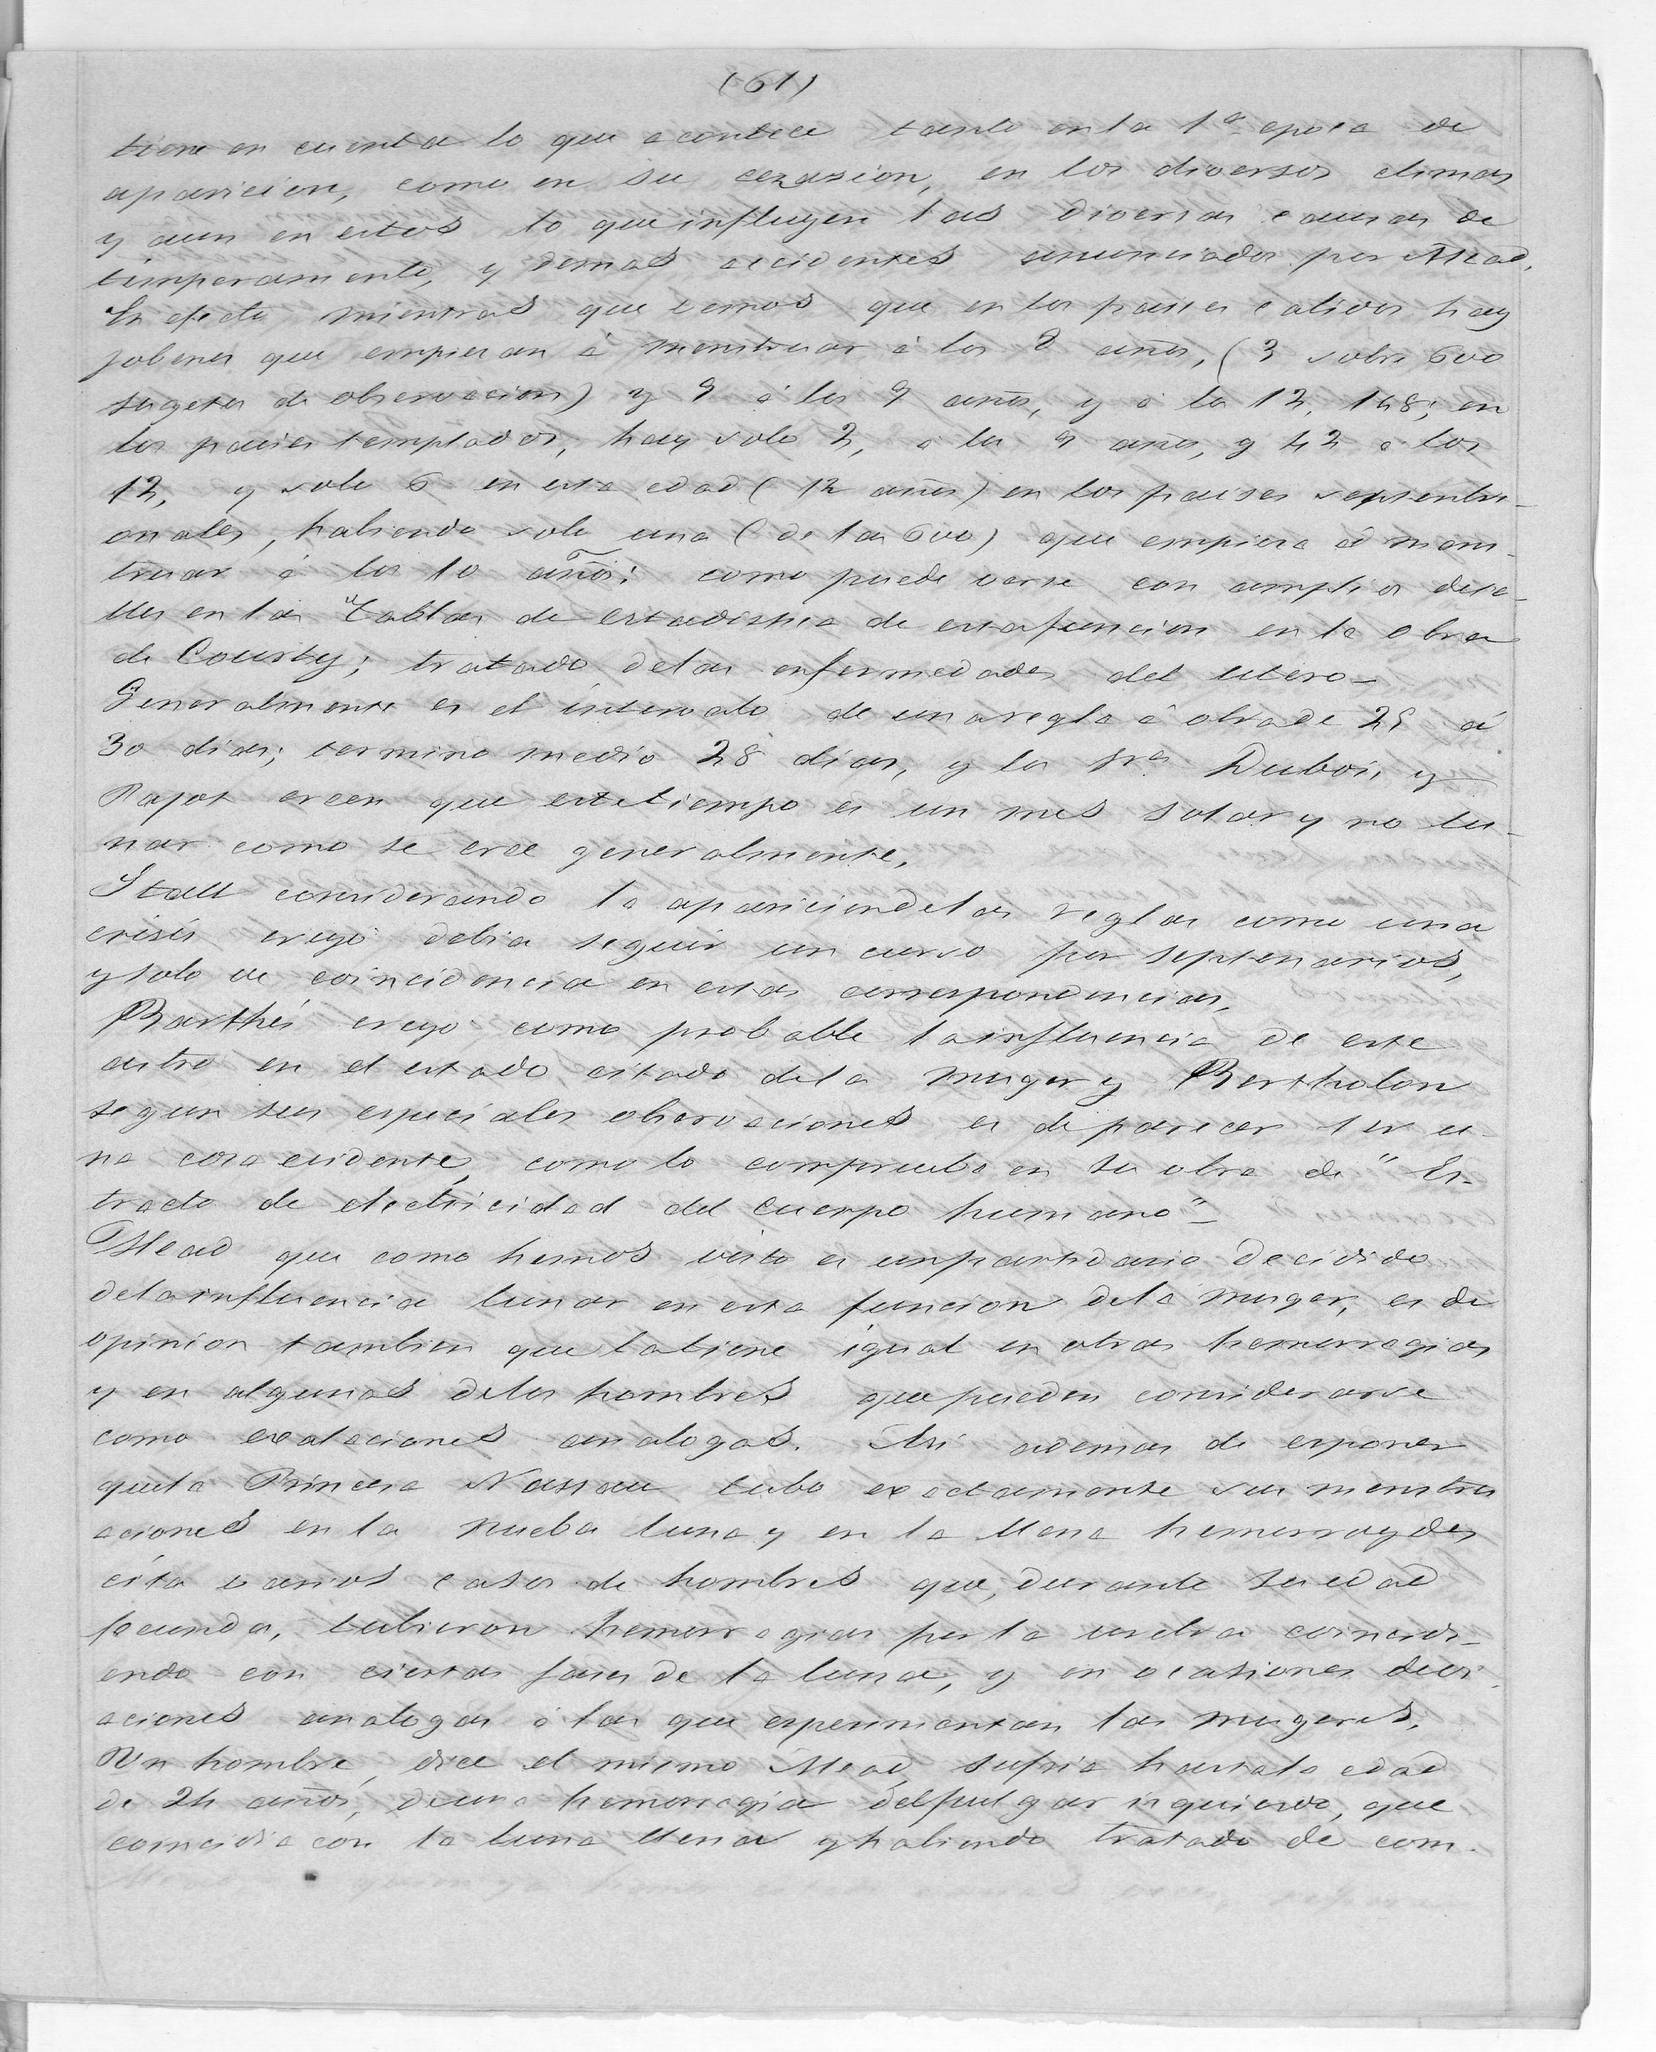 (61)
tiene en cuenta lo que acontece tanto en la 1ª epoca de
aparicion, como en su cezasion, en los diversos climas
y aun en estos lo que influyen las diversas causas de
temperamento, y demas accidentes anunciados por Mead.
En efecto mientras que vemos que en los paises calidos hay
jobenes que empiezan á menstruar á los 8 años, (3 sobre 600
sugetos de observacion) y 9 á los 9 años, y á los 12, 148; en
los paises templados, hay solo 2, á los 9 años, y 42 á los
12, y solo 6 en esta edad (12 años) en los paises septentri-
onales, habiendo solo una (de las 600) que empiece á mens-
truar á los 10 años: como puede verse con amplios deta-
lles en las "Tablas de estadistica de esta funcion en la obra
de Courty; tratado de las enfermedades del utero-
Generalmente es el intervalo de una regla á otra de 25 á
30 dias; termino medio 28 dias, y los Srs Dubois y
Pajot creen que este tiempo es un mes solar y no lu-
nar como se cree generalmente.
Stall considerando la aparicion de las reglas como una
crisis creyó debia seguir un curso por septenarios,
y solo ve coincidencia en estas correspondencias.
Barthés creyó como probable la influencia de este
astro en el estado citado de la muger y Bertholon
segun sus especiales observaciones es de parecer ser u-
na cosa evidente como lo comprueba en su obra de "Es-
tracto de electricidad del cuerpo humano"-
Mead que como hemos visto es un partidario decidido
de la influencia lunar en esta funcion de la muger, es de
opinion tambien que la tiene igual en otras hemorragias
y en algunas de los hombres que pueden considerarse
como exalaciones analogas. Asi ademas de exponer
que la Princesa Nassau tubo exactamente sus menstru
aciones en la nueba luna y en la llena hemorroydes
cita varios casos de hombres que, durante su edad
fecunda, tubieron hemorragias por la uretra coincidi-
endo con ciertas fases de la luna, y en ocasiones
aciones analogas á las que esperimentan las mugeres.
Un hombre, dice el mismo Mead, sufria hasta la edad
de 24 años, de una hemorragia del pulgar izquierdo, que
coincidia con la luna llena y habiendo tratado de com-